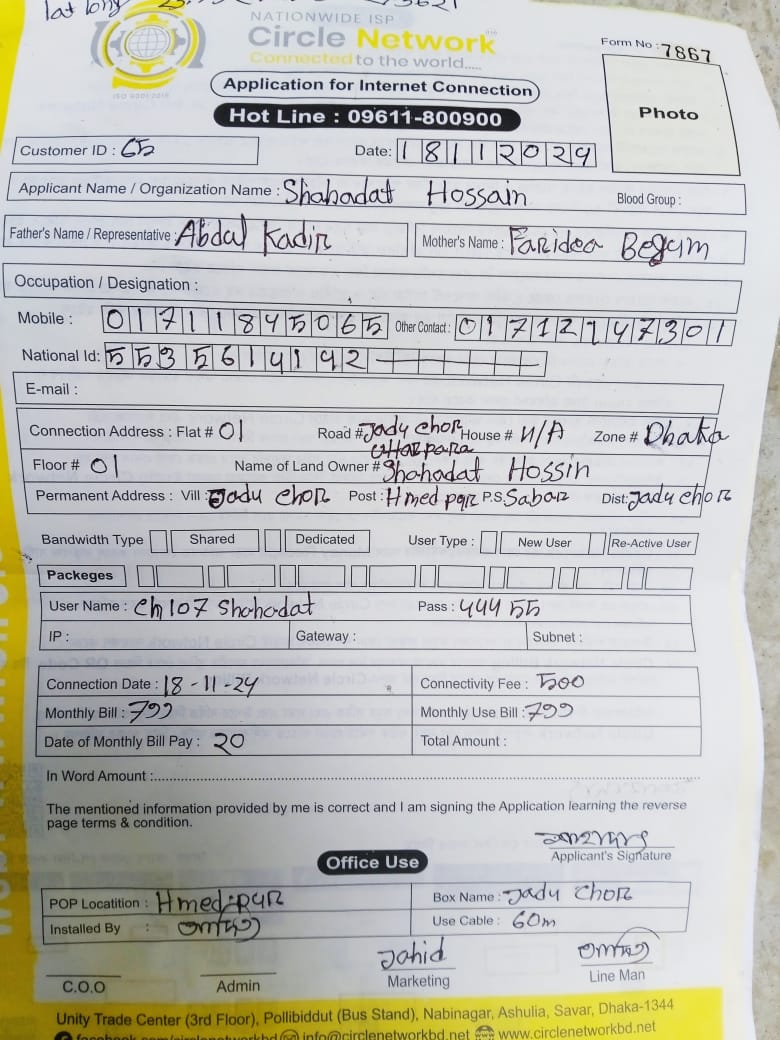 lat long
NATIONWIDE ISP
Circle Network
Connected to the world.....
ISO 9001:2015
Form No : 7867
Application for Internet Connection
Hot Line : 09611-800900
Photo
Customer ID : 65
Date: 18112024
Applicant Name / Organization Name : Shahadat Hossain Blood Group :
Father's Name / Representative : Abdul Kadir Mother's Name : Faridea Begum
Occupation / Designation :
Mobile : 01711845065 Other Contact : 01712147301
National Id: 5535614142
E-mail :
Connection Address : Flat # 01 Road # Jadu chor uttar para House # N/A Zone # Dhaka
Floor # 01 Name of Land Owner # Shahadat Hossin
Permanent Address : Vill : Jadu chor Post : Hmed pur P.S. Sabar Dist: Jadu chor
Bandwidth Type Shared Dedicated User Type : New User Re-Active User
Packeges
User Name : Ch107 Shahadat Pass : 444 55
IP : Gateway : Subnet :
Connection Date : 18-11-24 Connectivity Fee : 500
Monthly Bill : 799 Monthly Use Bill : 799
Date of Monthly Bill Pay : 20 Total Amount :
In Word Amount :
The mentioned information provided by me is correct and I am signing the Application learning the reverse
page terms & condition.
Applicant's Signature
Office Use
POP Locatition : Hmed pur Box Name : Jadu Chor
Installed By : Use Cable : 60m
Jahid
C.O.O Admin Marketing Line Man
Unity Trade Center (3rd Floor), Pollibiddut (Bus Stand), Nabinagar, Ashulia, Savar, Dhaka-1344
facebook.com/circlenetworkbd info@circlenetworkbd.net www.circlenetworkbd.net